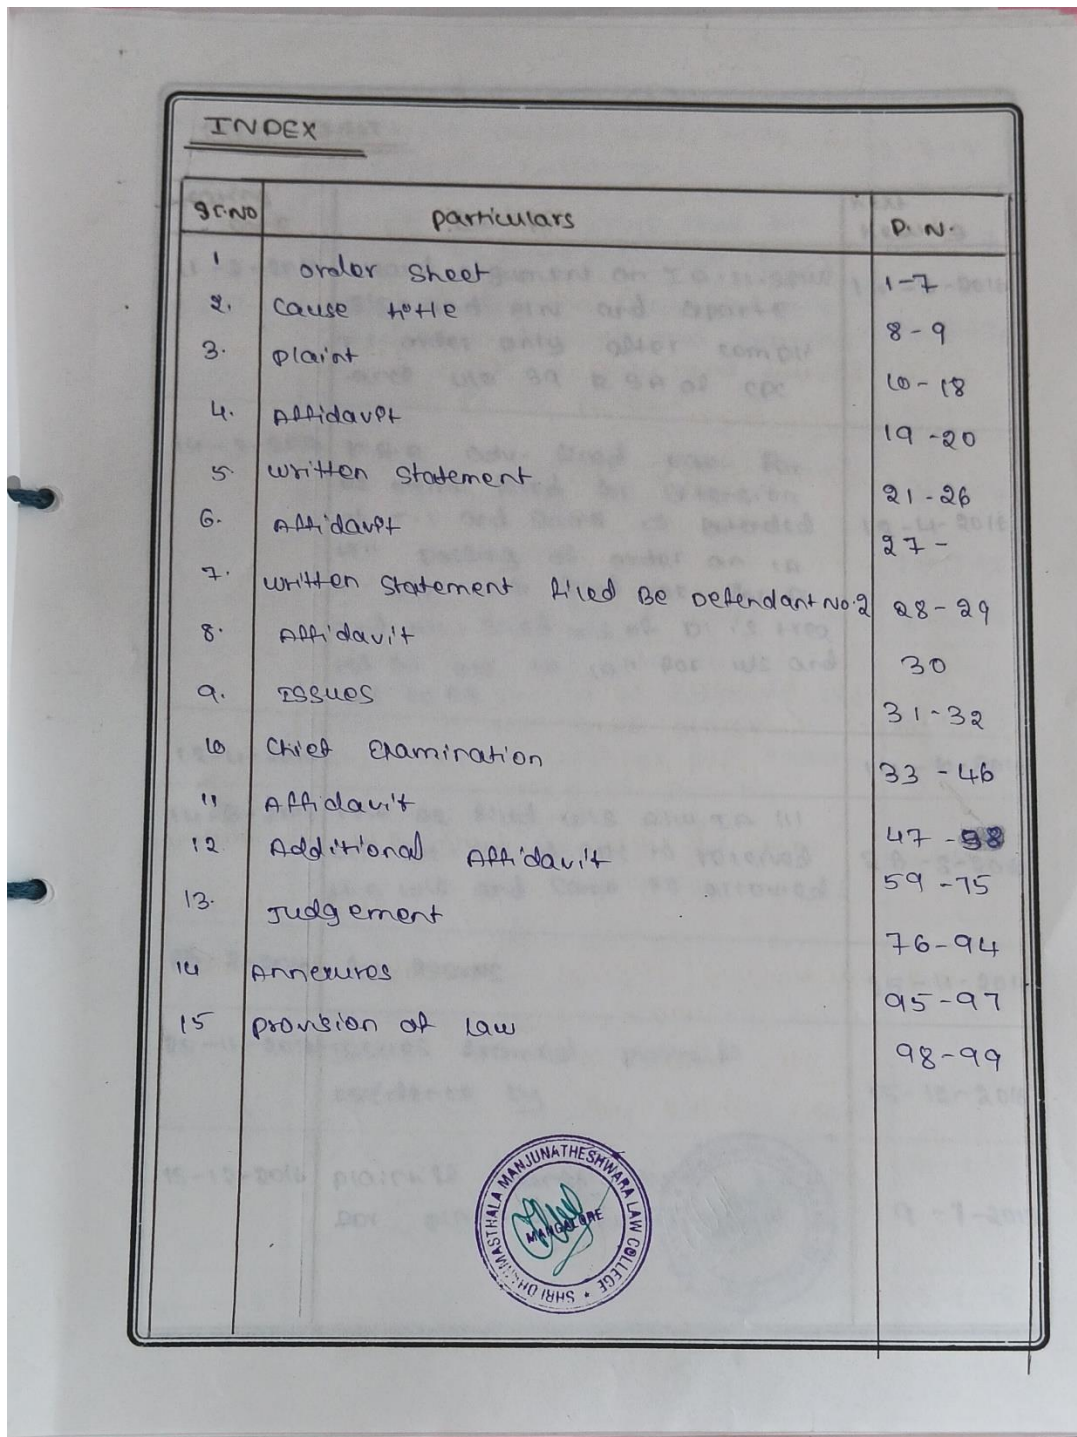 INDEX
Sr.No Particulars P. N.
1 order Sheet 1-7
2. Cause title 8-9
3. plaint 10-18
4. Affidavit 19-20
5. written Statement 21-26
6. Affidavit 27-
7. written Statement filed Be Defendant No.2 28-29
8. Affidavit 30
9. ISSUES 31-32
10 Chief Examination 33-46
11 Affidavit 47-58
12 Additional Affidavit 59-75
13. Judgement 76-94
14 Annexures 95-97
15 provision of law 98-99
SHRI DHARMASTHALA MANJUNATHESHWARA LAW COLLEGE
MANGALORE